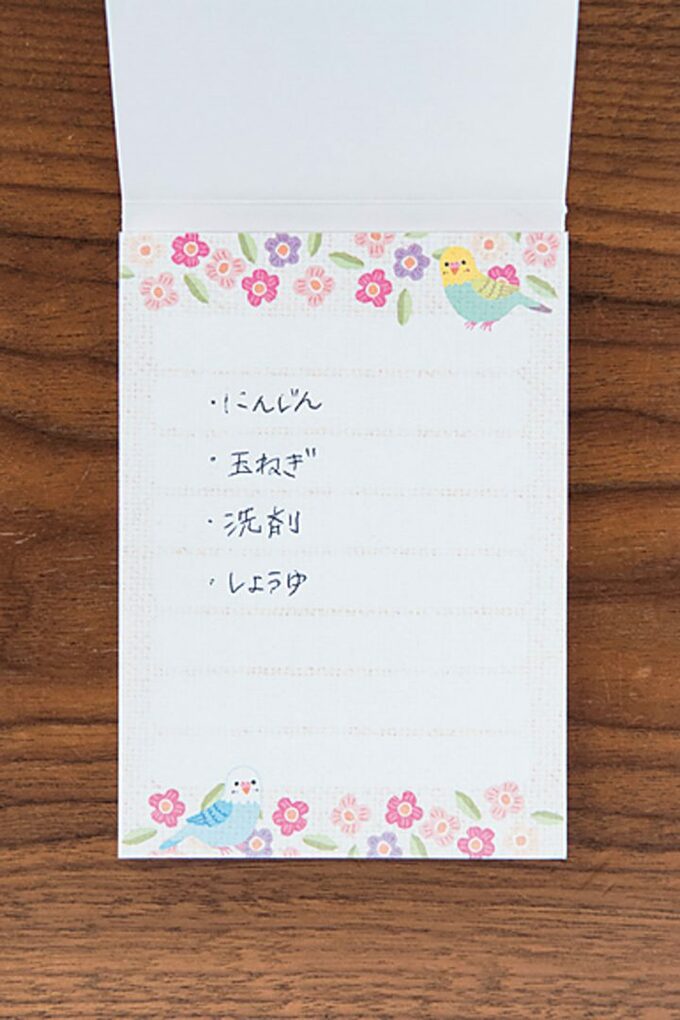 ・にんじん
・玉ねぎ
・洗剤
・しょうゆ